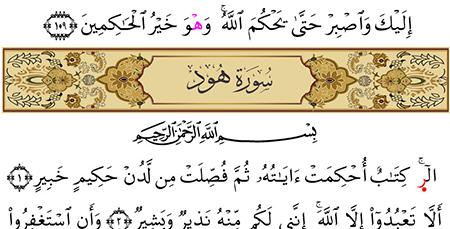 إِلَيْكَ وَٱصْبِرْ حَتَّىٰ يَحْكُمَ ٱللَّهُ ۚ وَهْوَ خَيْرُ ٱلْحَـٰكِمِينَ ﴿١٠٩﴾
سُورَةُ هُودٍ
بِسْمِ ٱللَّهِ ٱلرَّحْمَـٰنِ ٱلرَّحِيمِ
الٓر ۚ كِتَـٰبٌ أُحْكِمَتْ ءَايَـٰتُهُۥ ثُمَّ فُصِّلَتْ مِن لَّدُنْ حَكِيمٍ خَبِيرٍ ﴿١﴾
أَلَّا تَعْبُدُوٓا۟ إِلَّا ٱللَّهَ ۚ إِنَّنِى لَكُم مِّنْهُ نَذِيرٌ وَبَشِيرٌ ﴿٢﴾ وَأَنِ ٱسْتَغْفِرُوا۟